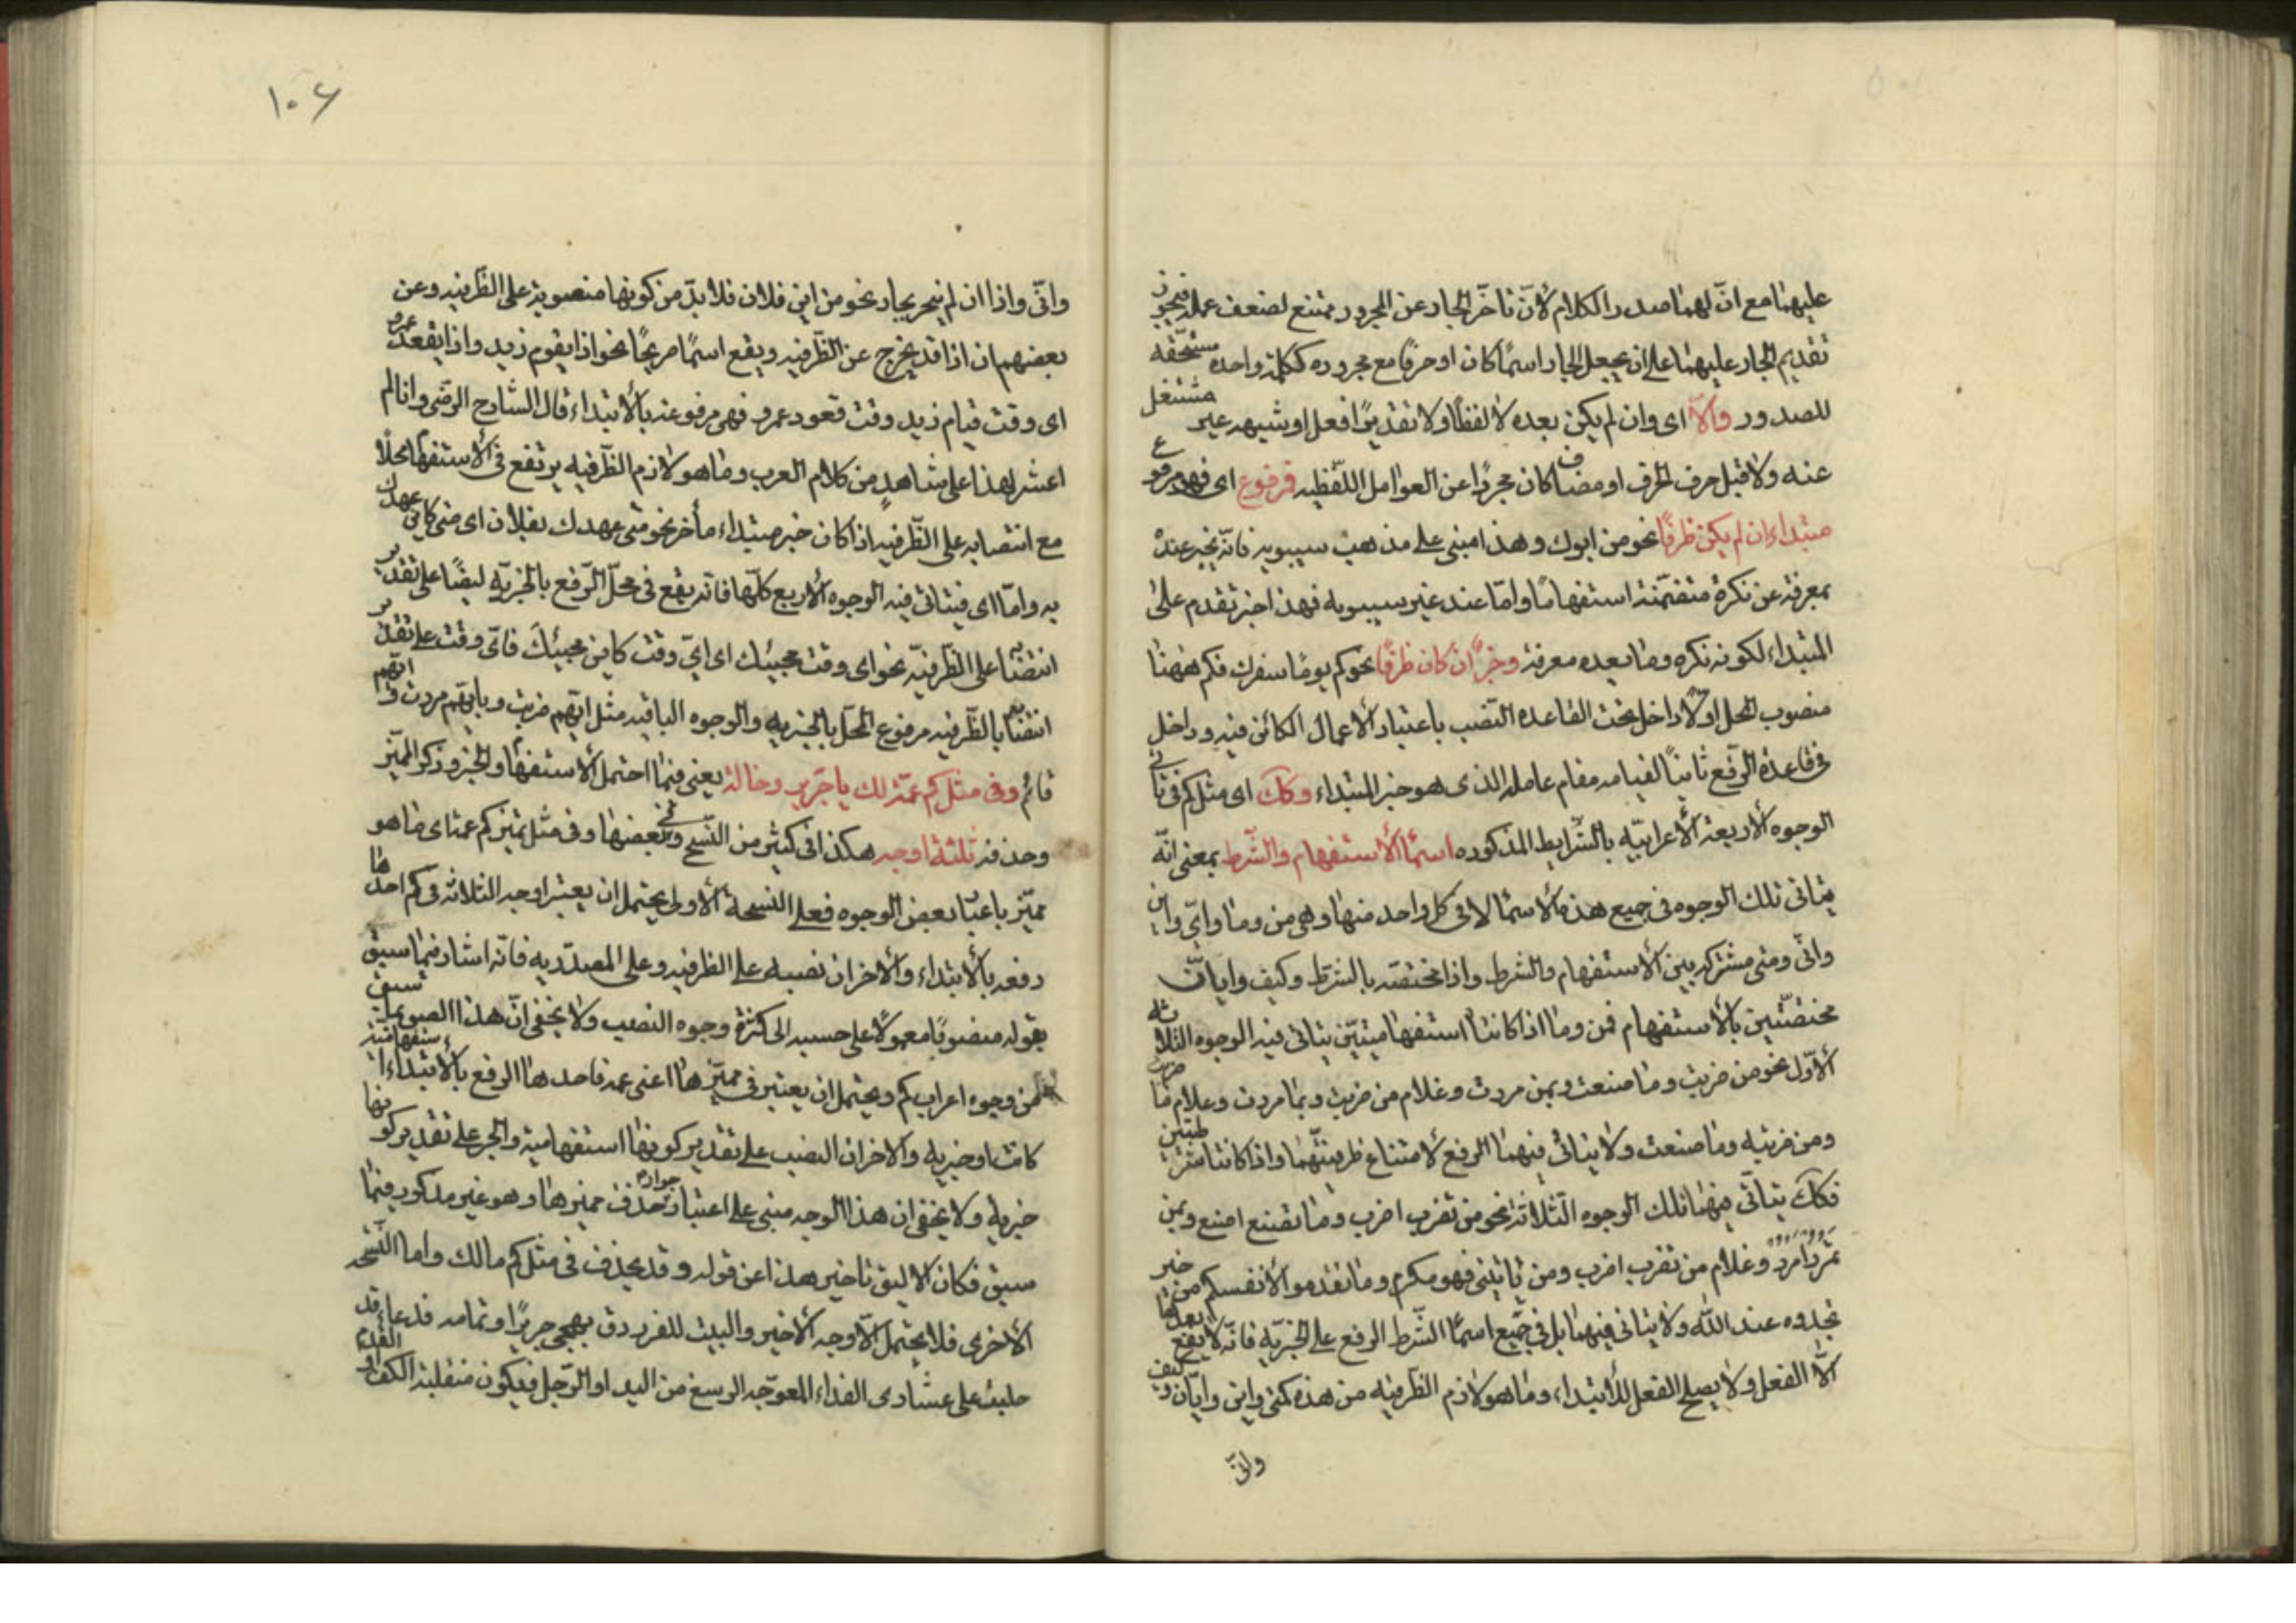 عليهما مع انّ لهما صدر الكلام لانّ تاخّر الجار عن المجرور ممتنع لضعف عمله فيجوز
تقديم الجار عليهما على ان يجعل الجار اسمًا كان او حرفًا مع مجروره ككلمة واحدة مستحقّه
للصدور والّا اى وان لم يكن بعده لا لفظًا ولا تقديرًا فعل او شبهه غير مشتغل
عنه ولا قبله حرف الجر او مضاف كان مجردًا عن العوامل اللّفظيه فرفوع اى فهو مرفوع
مبتداء ان لم يكن ظرفًا نحو من ابوك وهذا مبنى على مذهب سيبويه فانّه يخبر عنده
بمعرفة عن نكرة متضمّنة استفهامًا وامّا عند غير سيبويه فهذا خبر تقدم على
المبتداء لكونه نكره وما بعده معرفة وخبرًا ان كان ظرفًا نحو كم يومًا سفرك فكم ههنا
منصوب المحل اولًا داخل تحت القاعدة النّصب باعتبار الاعمال الكائن فيه وداخل
فى قاعدة الرّفع ثانيًا لقيامه مقام عامله الذى هو خبر المبتداء وكك اى مثل كم فى تأتى
الوجوه الاربعة الاعرابيّه بالشّرايط المذكوره اسمآ الاستفهام والشّرط بمعنى انّه
يتأتى تلك الوجوه فى جميع هذه الاسمآ لا فى كل واحد منها وهى من وما واىّ واين
وانّى ومتى مشتركه بين الاستفهام والشرط واذا مختصّه بالشرط وكيف وايان
مختصّتين بالاستفهام فمن وما اذا كانتا استفهاميّتين يتأتى فيه الوجوه الثلاثه
الاوّل نحو من ضربت وما صنعت وبمن مررت وغلام من ضربت وبما مررت وغلام ما ضربت
ومن ضربته وما صنعت ولا يتأتى فيهما الرفع لامتناع ظرفيّتهما واذا كانتا شرطيّتين
فكك يتأتّى فيهما تلك الوجوه الثّلاثة نحو من تضرب اضرب وما تصنع اصنع وبمن
تمرر امرر وغلام من تضرب اضرب ومن تأتينى فهو مكرم وما تقدموا لانفسكم من خير
تجدوه عند الله ولا يتأتى فيهما بل فى جميع اسمآ الشّرط الرفع على الخبريّه فانّه لا يقع بعدها
الّا الفعل ولا يصلح الفعل للابتداء وما هو لازم الظّرفيه من هذه كمتى واين وايّان وكيف
وانّى
١٠٦
وانّى واذا ان لم ينجر بجار نحو من اين فلان فلا بدّ من كونها منصوبة على الظّرفيه وعن
بعضهم ان اذا قد يخرج عن الظّرفيه ويقع اسمًا صريحًا نحو اذا يقوم زيد واذا يقعد عمرو
اى وقت قيام زيد وقت قعود عمرو فهى مرفوعه بالابتداء قال الشارح الرّضى وانا لم
اعثر لهذا على شاهد من كلام العرب وما هو لازم الظّرفيه يرتفع فى الاستفهام محلًا
مع انتصابه على الظّرفيه اذا كان خبر مبتداء مأخر نحو متى عهدك بفلان اى متى كاين عهدك
به وامّا اى فيتأتى فيه الوجوه الاربع كلّها فانّه يقع فى محلّ الرّفع بالخبريّه ايضًا على تقدير
انتصابه على الظّرفيّه نحو اى وقت مجيئك اى اىّ وقت كاين مجيئك فاىّ وقت على تقدير
انتصابه بالظّرفيه مرفوع المحلّ بالخبريه والوجوه الباقيه مثل ايّهم ضربت وبايّهم مررت و ايّهم
قائم وفى مثل كم عمّة لك يا جرير وخالة يعنى فيما احتمل الاستفهام والخبر وذكر المميّز
وحذفه ثلثة اوجه هكذا فى كثير من النّسخ وفى بعضها وفى مثل تميز كم عمة اى ما هو
مميّز باعتبار بعض الوجوه فعلى النسخة الاولى يحتمل ان يعتبر اوجه الثلاثه فى كم احدها
رفعه بالابتداء والاخران نصبه على الظرفيه وعلى المصدّريه فانّه اشار فيما سبق
بقوله منصوبًا معمولًا على حسبه الى كثرة وجوه النصب ولا يخفى انّ هذا
من وجوه اعراب كم ويحتمل ان يعتبر فى مميّزها اعنى عمه فاحدها الرفع بالابتداء استفهامية
كانت او خبريه والاخران النصب على تقدير كونها استفهامية والجر على تقدير كونها
خبرية ولا يخفى ان هذا الوجه مبنى على اعتبار جواز حذف مميزها وهو غير مذكور فيما
سبق فكان الاليق تاخير هذا عن قوله وقد يحذف فى مثل كم مالك واما النّسخه
الاخرى فلا يحتمل الّا وجه الاخير والبيت للفرزدق يهجى جريرًا وتمامه فدعاء قد
حلبت على عشارى الفدعاء المعوّجه الرسغ من اليد او الرّجل فيكون منقلبة الكف او القدم